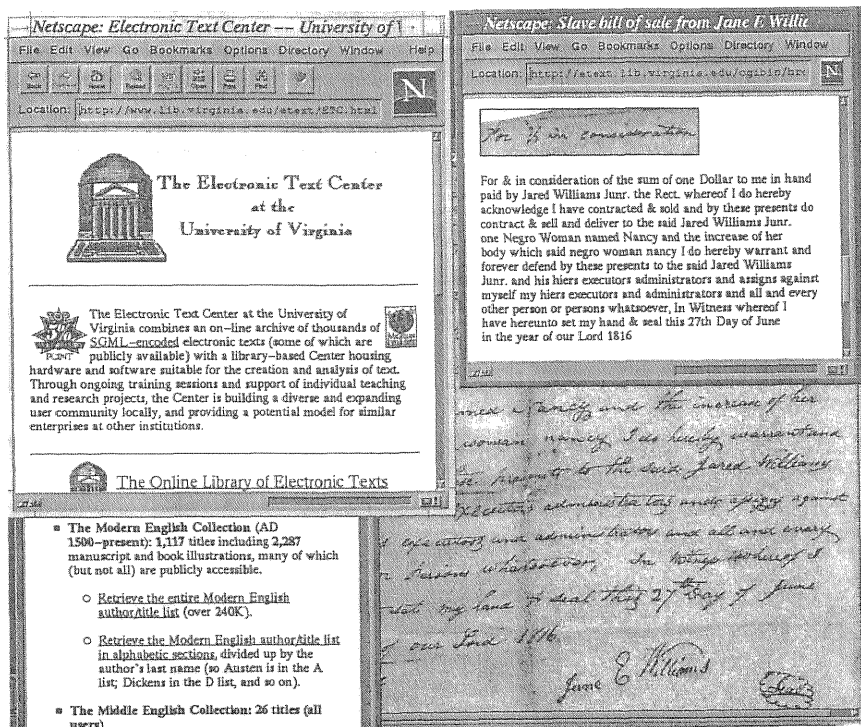 Netscape: Electronic Text Center –– University of
File Edit View Go Bookmarks Options Directory Window Help
Back
Home
Reload
Open
Print
Find
N
Location: http://www.lib.virginia.edu/etext/ETC.html
The Electronic Text Center
at the
University of Virginia
POINT
The Electronic Text Center at the University of
Virginia combines an on–line archive of thousands of
SGML–encoded electronic texts (some of which are
publicly available) with a library–based Center housing
hardware and software suitable for the creation and analysis of text.
Through ongoing training sessions and support of individual teaching
and research projects, the Center is building a diverse and expanding
user community locally, and providing a potential model for similar
enterprises at other institutions.
The Online Library of Electronic Texts
The Modern English Collection (AD
1500–present): 1,117 titles including 2,287
manuscript and book illustrations, many of which
(but not all) are publicly accessible.
Retrieve the entire Modern English
author/title list (over 240K).
Retrieve the Modern English author/title list
in alphabetic sections, divided up by the
author's last name (so Austen is in the A
list; Dickens in the D list, and so on).
The Middle English Collection: 26 titles (all
users)
Netscape: Slave bill of sale from Jane E Willia
File Edit View Go Bookmarks Options Directory Window
Location: http://etext.lib.virginia.edu/cgibin/bro
N
For & in consideration
For & in consideration of the sum of one Dollar to me in hand
paid by Jared Williams Junr. the Rect. whereof I do hereby
acknowledge I have contracted & sold and by these presents do
contract & sell and deliver to the said Jared Williams Junr.
one Negro Woman named Nancy and the increase of her
body which said negro woman nancy I do hereby warrant and
forever defend by these presents to the said Jared Williams
Junr. and his hiers executors administrators and assigns against
myself my hiers executors and administrators and all and every
other person or persons whatsoever, In Witness whereof I
have hereunto set my hand & seal this 27th Day of June
in the year of our Lord 1816
med Nancy and the increase of her
woman nancy I do hereby warrant and
presents to the said Jared Williams
executors administrators and assigns against
executors and administrators and all and every
persons whatsoever, In Witness whereof I
set my hand & seal this 27th Day of June
our Lord 1816.
Jane E Williams
Seal